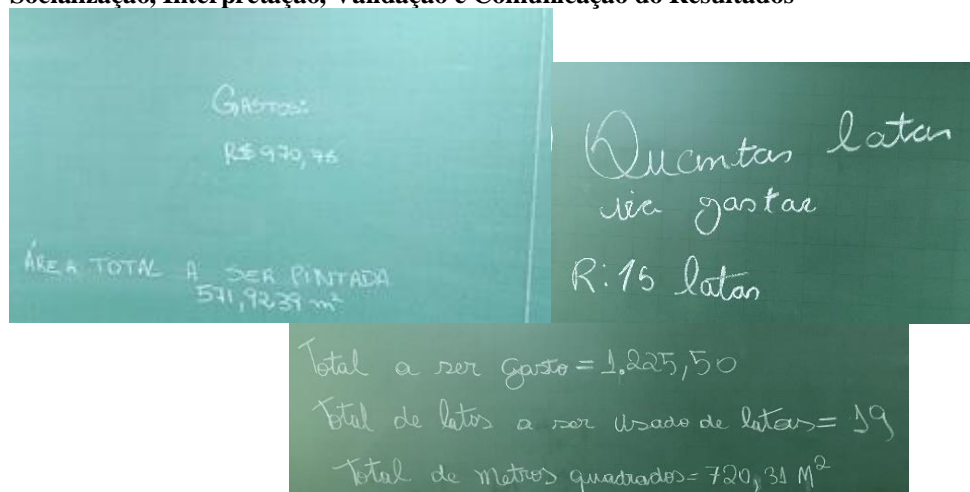 Socialização, Interpretação, Validação e Comunicação do Resultados
GASTOS:
R$ 970,76
ÁREA TOTAL A SER PINTADA
571,9239 m²
Quantas latas
iria gastar
R: 15 latas
Total a ser gasto = 1.225,50
Total de latos a ser usado de latas = 19
Total de metros quadrados = 720,31 M²